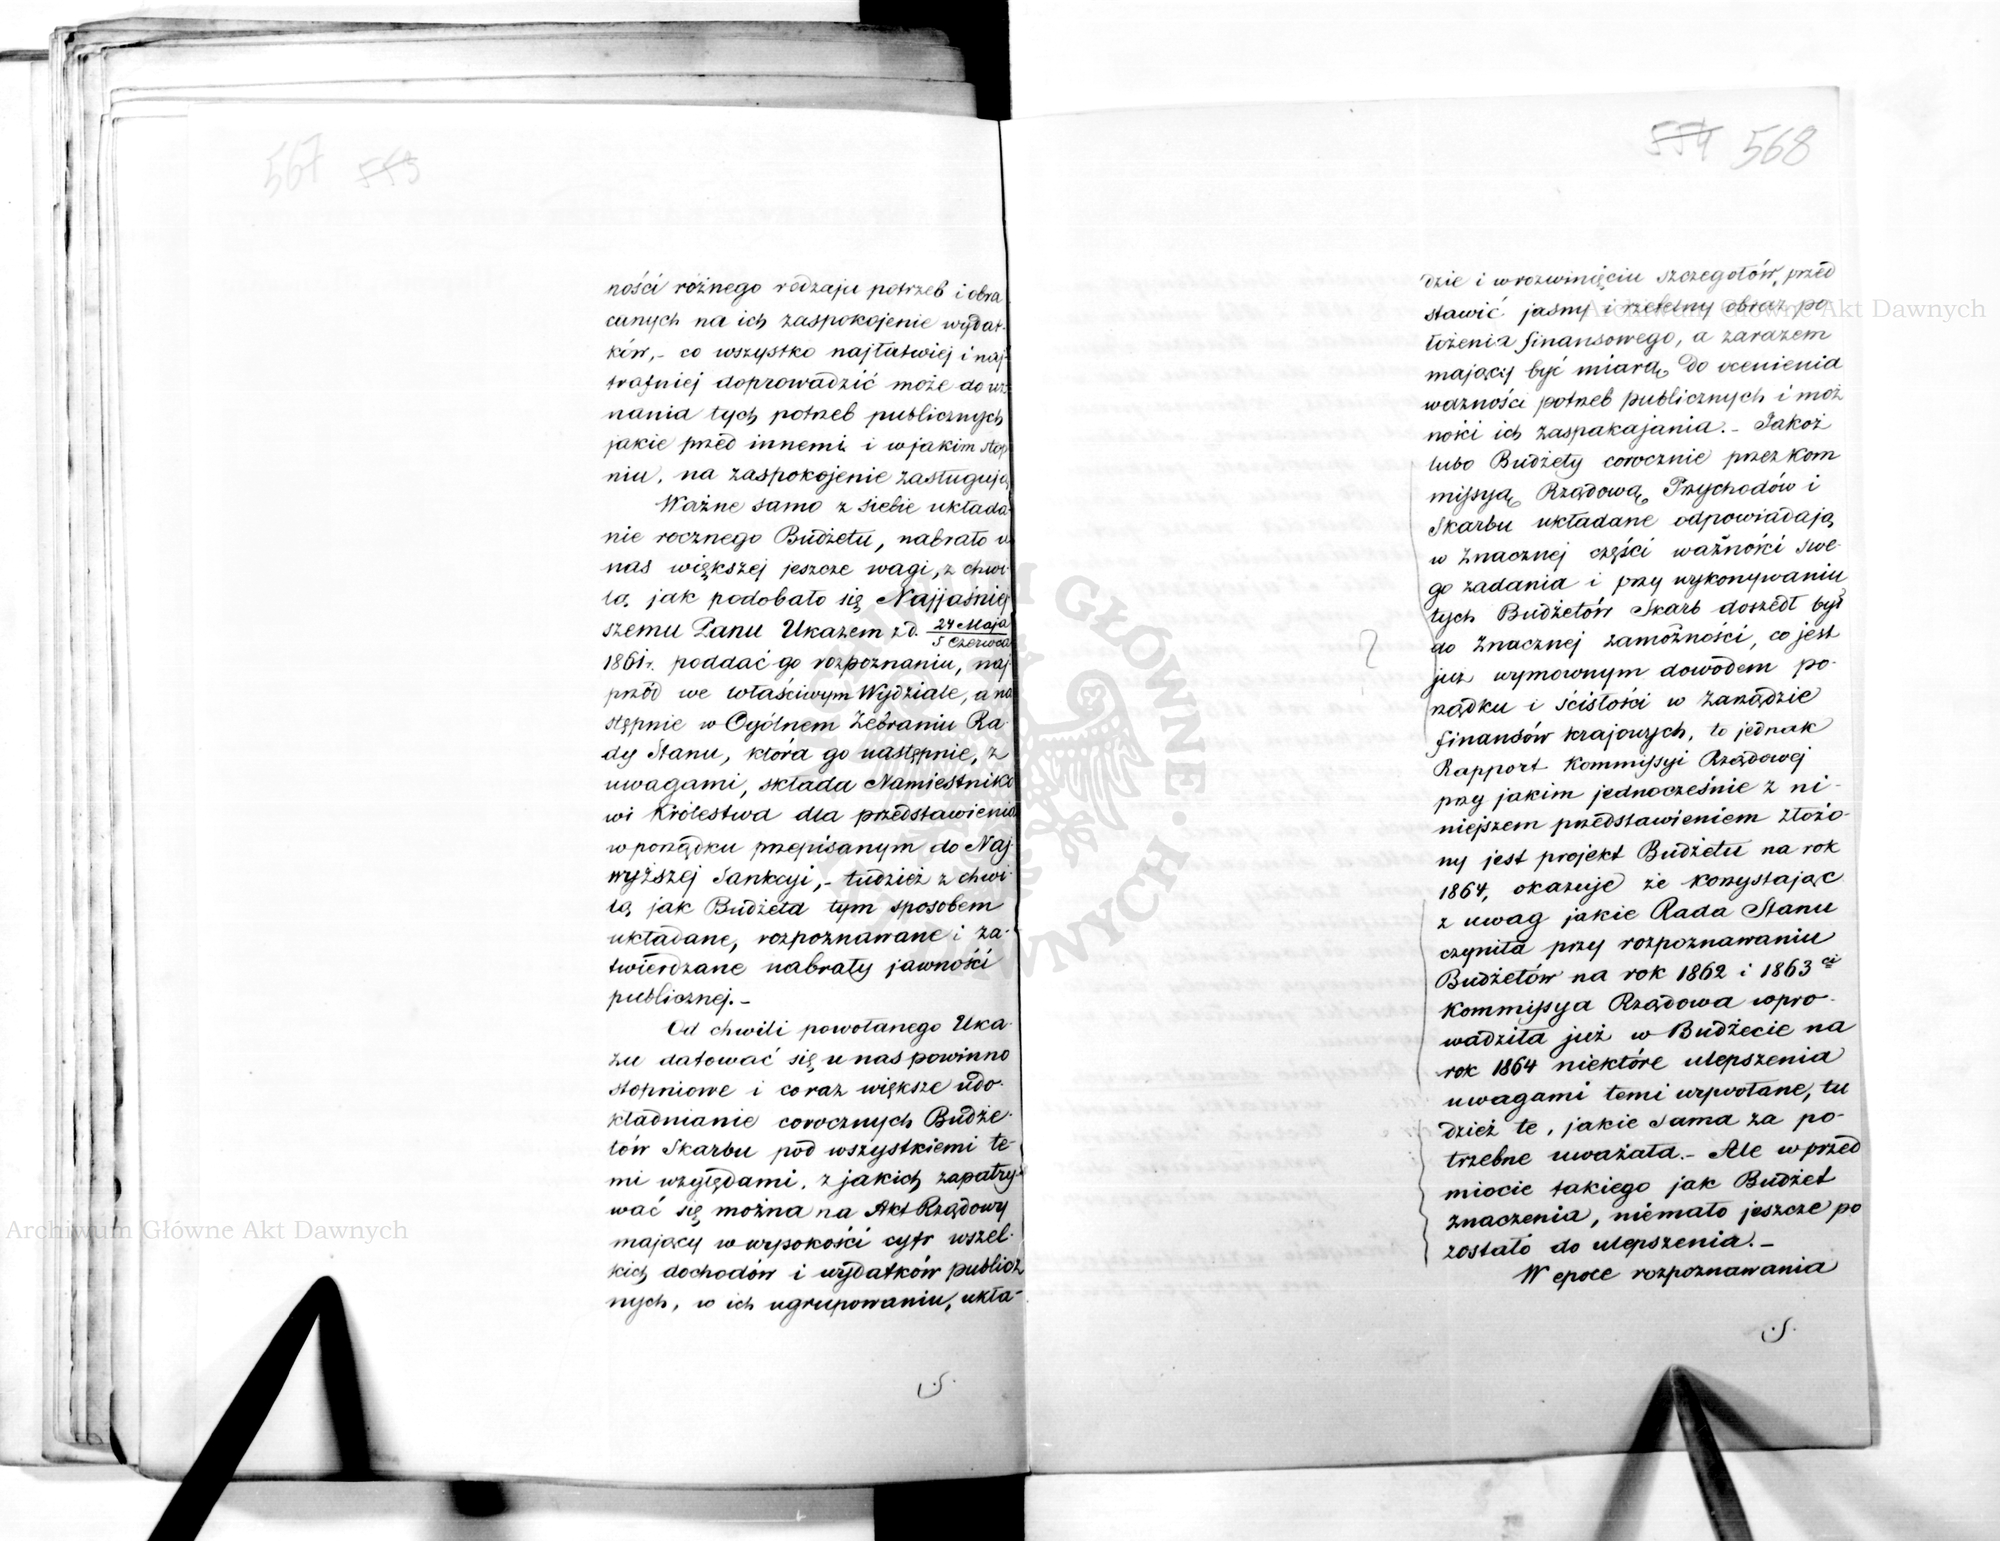 567 553
ności różnego rodzaju potrzeb i obra
canych na ich zaspokojenie wydat-
ków,- co wszystko najłatwiej i naj-
trafniej doprowadzić może do uz-
nania tych potrzeb publicznych
jakie przed innemi i w jakim stop
niu, na zaspokojenie zasługują
Ważne samo z siebie układa-
nie rocznego Budżetu, nabrało u
nas większej jeszcze wagi, z chwi-
lą, jak podobało się Najjaśniej
szemu Panu Ukazem z d. 24 Maja / 5 Czerwca
1861 r. poddać go rozpoznaniu, naj-
przód we właściwym Wydziale, a na
stępnie w Ogólnem Zebraniu Ra-
dy Stanu, która go następnie, z
uwagami, składa Namiestniko
wi Królestwa dla przedstawienia
w porządku przepisanym do Naj-
wyższej Sankcyi,- tudzież z chwi-
lą jak Budżeta tym sposobem
układane, rozpoznawane i za-
twierdzane nabrały jawności
publicznej.-
Od chwili powołanego Uka-
zu datować się u nas powinno
stopniowe i coraz większe udo-
kładnianie corocznych Budże-
tów Skarbu pod wszystkiemi te-
mi względami, z jakich zapatry-
wać się można na Akt Rządowy
mający w wysokości cyfr wszel-
kich dochodów i wydatków publicz
nych, w ich ugrupowaniu, ukła-
554 568
dzie i w rozwinięciu szczegółów, przed
stawić jasny i rzetelny obraz po-
łożenia finansowego, a zarazem
mający być miarą do ocenienia
ważności potrzeb publicznych i moż
ności ich zaspakajania.- Jakoż
lubo Budżety corocznie przez Kom
missyą Rządową Przychodów i
Skarbu układane odpowiadają
w znacznej części ważności swe-
go zadania i przy wykonywaniu
tych Budżetów Skarb doszedł był
do znacznej zamożności, co jest
już wymownym dowodem po-
rządku i ścisłości w zarządzie
finansów krajowych, to jednak
Rapport Kommissyi Rządowej
przy jakim jednocześnie z ni-
niejszem przedstawieniem złożo-
ny jest projekt Budżetu na rok
1864, okazuje że korzystając
z uwag jakie Rada Stanu
czyniła przy rozpoznawaniu
Budżetów na rok 1862 i 1863 ci
Kommissya Rządowa wpro-
wadziła już w Budżecie na
rok 1864 niektóre ulepszenia
uwagami temi wywołane, tu
dzież te, jakie sama za po-
trzebne uważała.- Ale w przed
miocie takiego jak Budżet
znaczenia, niemało jeszcze po
zostało do ulepszenia.-
W epoce rozpoznawania
Archiwum Główne Akt Dawnych
Archiwum Główne Akt Dawnych